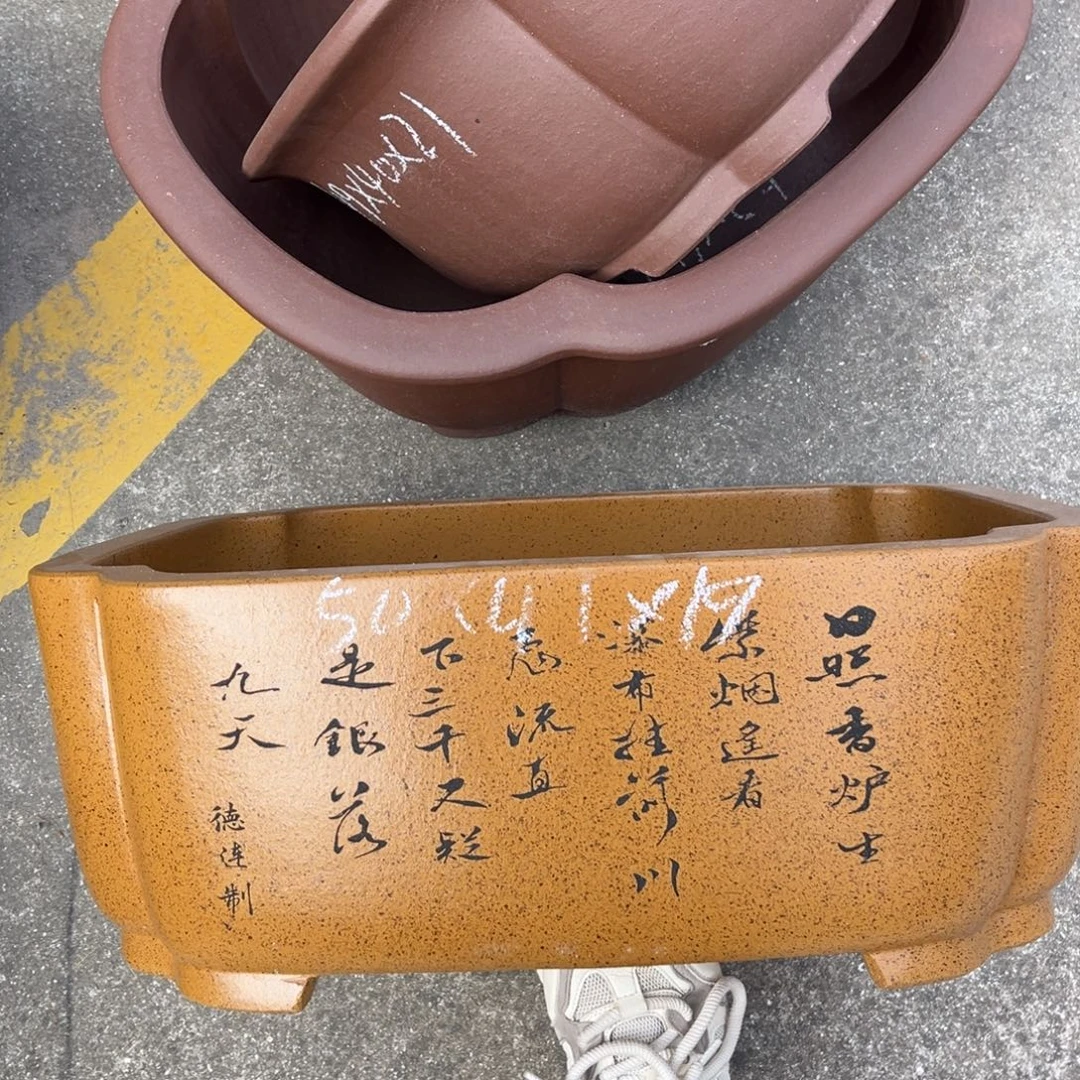 x40x21
50x41x19
日照香炉生
紫烟遥看
瀑布挂前川
飛流直
下三千尺疑
是銀落
九天
德连制